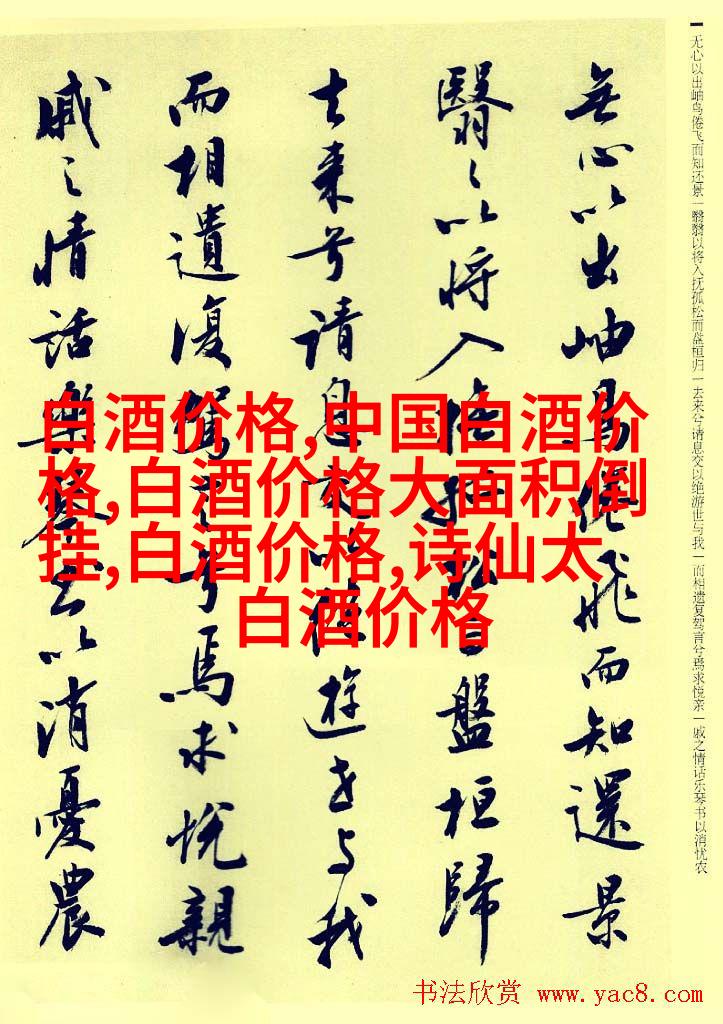 无心以出岫鸟倦飞而知还景一翳翳以将入抚孤松而盘桓归一去来兮请息交以绝游世与我一而相遗复驾言兮焉求悦亲一戚之情话乐琴书以消忧农
無心以出岫鳥倦飛而知還景
翳々以將入撫孤松盤桓歸
去来兮請息交以遊世与我
而相遺復駕兮焉求悦親
戚之情話樂以消憂農
白酒价格,中国白酒价
格,白酒价格大面积倒
挂,白酒价格,诗仙太
白酒价格
书法欣赏 www.yac8.com